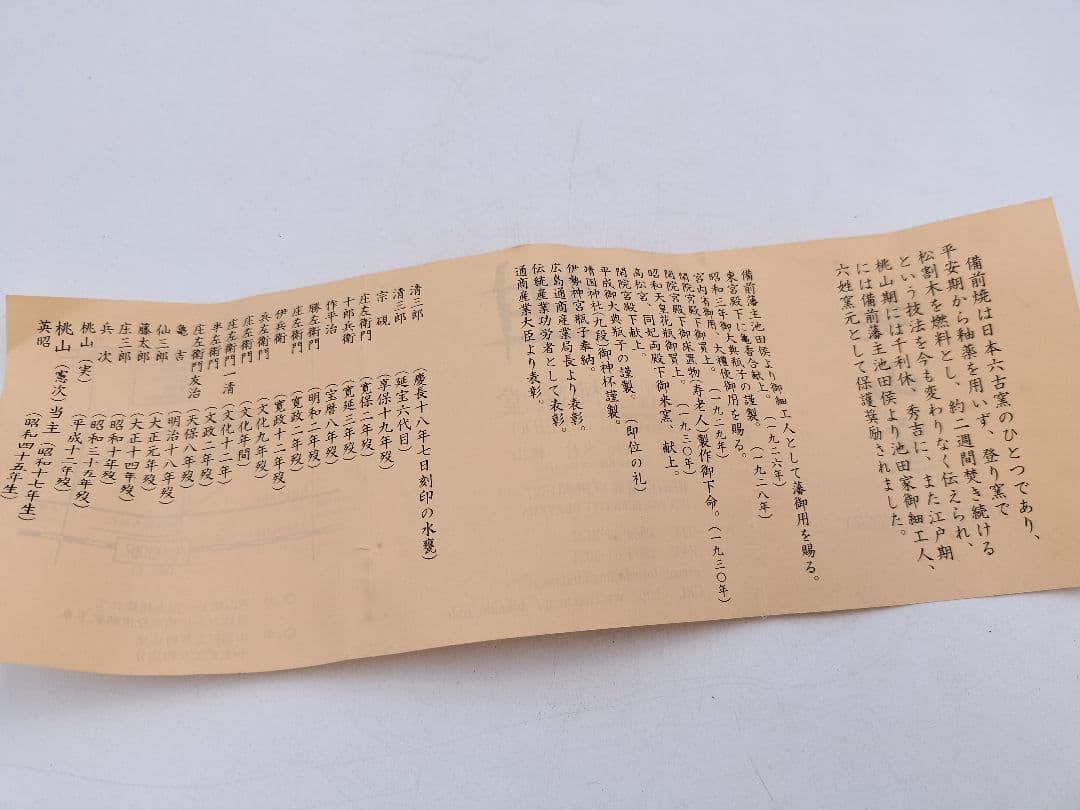 備前焼は日本六古窯のひとつであり、
平安期から釉薬を用いず、登り窯で
松割木を燃料とし、約二週間焚き続ける
という技法を今も変わりなく伝えられ、
桃山期には千利休、秀吉に、また江戸期
には備前藩主池田侯より池田家御細工人、
六姓窯元として保護奨励されました。
備前藩主池田侯より御細工人として藩御用を賜る。
東宮殿下に亀香合献上。(一九二六年)
昭和三年御大典瓶子の謹製。(一九二八年)
宮内省御用、大禮使御用を賜る。
閑院宮殿下御買上。(一九二九年)
閑院宮殿下御床置物(寿老人)製作御下命。(一九三〇年)
昭和天皇花瓶御買上。(一九三〇年)
高松宮、同妃両殿下御来窯、献上。
閑院宮殿下献上。
平成御大典瓶子の謹製。(即位の礼)
靖国神社(九段)御神杯謹製。
伊勢神宮瓶子奉納。
広島通商産業局長より表彰。
伝統産業功労者として表彰。
通商産業大臣より表彰。
清三郎(慶長十八年七日刻印の水甕)
清三郎(延宝六代目)
宗硯(享保十九年歿)
庄左衛門(寛保二年歿)
十郎兵衛(寛延三年歿)
作平治(宝暦八年歿)
勝左衛門(明和二年歿)
庄左衛門(寛政二年歿)
伊兵衛(寛政十二年歿)
兵左衛門(文化九年歿)
庄左衛門(文化年間)
庄左衛門一清(文化十二年)
半左衛門(文政二年歿)
庄左衛門友治(天保八年歿)
亀吉(明治十八年歿)
仙三郎(大正元年歿)
藤太郎(大正十四年歿)
庄三郎(昭和十年歿)
兵次(昭和三十五年歿)
桃山(実)(平成十二年歿)
桃山(憲次)当主(昭和十七年生)
英昭(昭和四十五年生)